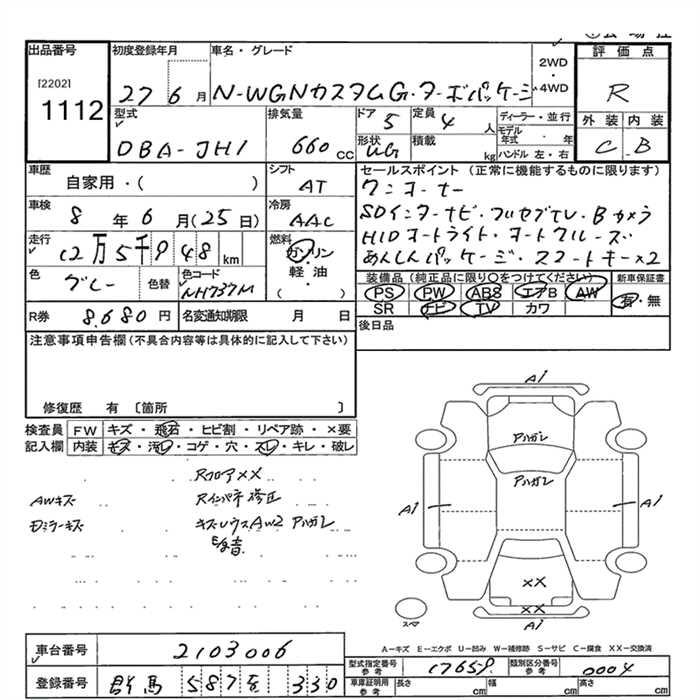 出品番号
[2202]
1112
初度登録年月
27 6月
車名・グレード
N-WGNカスタムG・ターボパッケージ
2WD
・
4WD
評価点
R
外装 内装
C B
型式
DBA-JH1
排気量
660 cc
ドア
5
定員
4 人
形状
WG
積載
kg
ディーラー・並行
モデル年式 ・ 年
ハンドル 左・右
車歴
自家用・( )
シフト
AT
車検
8年6月(25日)
冷房
AAC
走行
12万5千948km
燃料
ガソリン
軽油
・( )
色
グレー
色替
色コード
NH737M
R券
8.680円
名変通知期限 月 日
セールスポイント (正常に機能するものに限ります)
ワンオーナー
SDインターナビ・フルセグTV・Bカメラ
HIDオートライト・オートクルーズ
あんしんパッケージ・スマートキー×2
装備品 (純正品に限り○をつけてください) 新車保証書
PS PW ABS エアB AW
SR ナビ TV カワ
有・無
後日品
注意事項申告欄(不具合内容等は具体的に記入して下さい)
修復歴 有 〔箇所 〕
検査員 FW キズ・飛石・ヒビ割・リペア跡・×要
記入欄 内装 キズ・汚レ・コゲ・穴・スレ・キレ・破レ
RフロアXX
AWキズ
Rインパネ修正
ミラーキズ
AW2 ハガレ
異音
A1
ハガレ
ハガレ
A1
A1
XX
XX
A1
スペア
A－キズ E－エクボ U－凹み W－補修跡 S－サビ C－腐食 XX－交換済
車台番号
2103006
登録番号
群馬 587 330
型式指定番号 参考
17659
類別区分番号 参考
0004
車庫証明用 参考
長さ cm
幅 cm
高さ cm